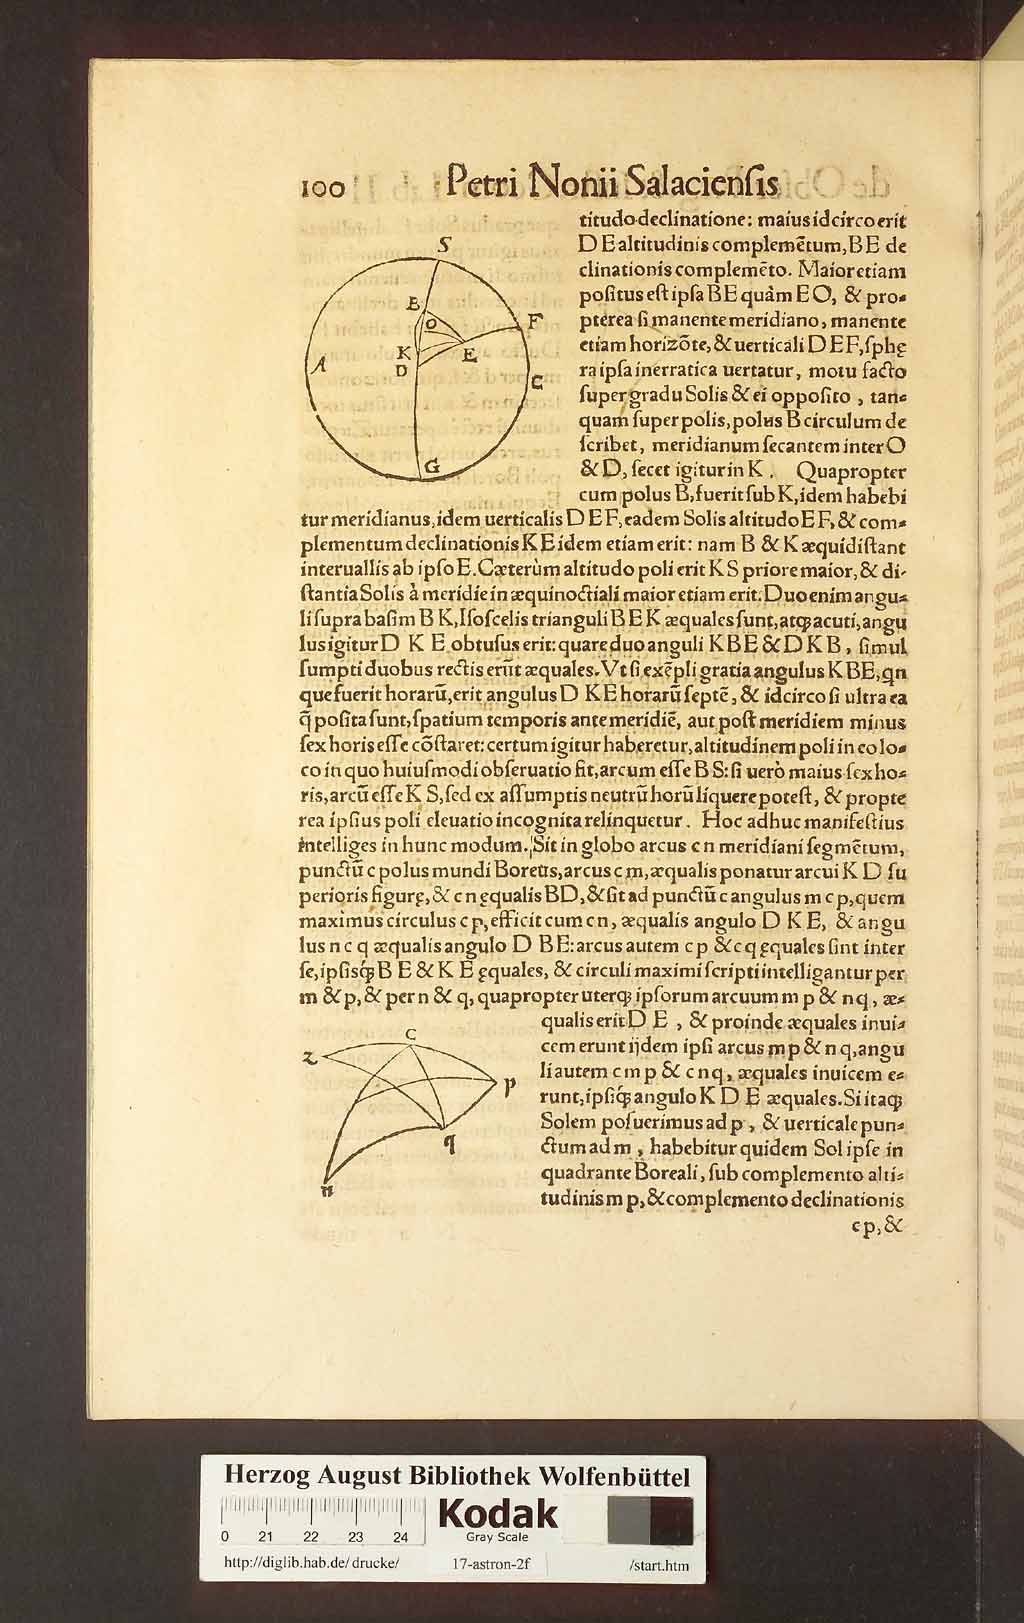 100 Petri Nonii Salaciensis
S
B
O
F
K
E
A
D
C
G
titudo declinatione: maius idcirco erit
D E altitudinis complemētum, B E de
clinationis complemēto. Maior etiam
positus est ipsa B E quàm E O, & pro-
pterea si manente meridiano, manente
etiam horizōte, & uerticali D E F, sphę
ra ipsa inerratica uertatur, motu facto
super gradu Solis & ei opposito, tan-
quam super polis, polus B circulum de
scribet, meridianum secantem inter O
& D, secet igitur in K. Quapropter
cum polus B, fuerit sub K, idem habebi
tur meridianus, idem uerticalis D E F, eadem Solis altitudo E F, & com-
plementum declinationis K E idem etiam erit: nam B & K æquidistant
interuallis ab ipso E. Cæterùm altitudo poli erit K S priore maior, & di-
stantia Solis à meridie in æquinoctiali maior etiam erit. Duo enim angu-
li supra basim B K, Isoscelis trianguli B E K æquales sunt, atq; acuti, angu
lus igitur D K E obtusus erit: quare duo anguli K B E & D K B, simul
sumpti duobus rectis erūt æquales. Vt si exēpli gratia angulus K B E, qn
que fuerit horarū, erit angulus D K E horarū septē, & idcirco si ultra ea
q̄ posita sunt, spatium temporis ante meridiē, aut post meridiem minus
sex horis esse cōstaret: certum igitur haberetur, altitudinem poli in eo lo-
co in quo huiusmodi obseruatio fit, arcum esse B S: si uerò maius sex ho-
ris, arcū esse K S, sed ex assumptis neutrū horū liquere potest, & propte
rea ipsius poli eleuatio incognita relinquetur. Hoc adhuc manifestius
intelliges in hunc modum. Sit in globo arcus c n meridiani segmētum,
punctū c polus mundi Boreus, arcus c m, æqualis ponatur arcui K D su
perioris figurę, & c n ęqualis B D, & sit ad punctū c angulus m c p, quem
maximus circulus c p, efficit cum c n, æqualis angulo D K E, & angu
lus n c q æqualis angulo D B E: arcus autem c p & c q ęquales sint inter
se, ipsisq́; B E & K E ęquales, & circuli maximi scripti intelligantur per
m & p, & per n & q, quapropter uterq; ipsorum arcuum m p & n q, æ-
qualis erit D E, & proinde æquales inui-
cem erunt ijdem ipsi arcus m p & n q, angu
li autem c m p & c n q, æquales inuicem e-
runt, ipsiq́; angulo K D E æquales. Si itaq;
Solem posuerimus ad p, & uerticale pun-
ctum ad m, habebitur quidem Sol ipse in
quadrante Boreali, sub complemento alti-
tudinis m p, & complemento declinationis
c p, &
c
z
p
q
n
Herzog August Bibliothek Wolfenbüttel
0 21 22 23 24
Kodak
Gray Scale
http://diglib.hab.de/drucke/ 17-astron-2f /start.htm